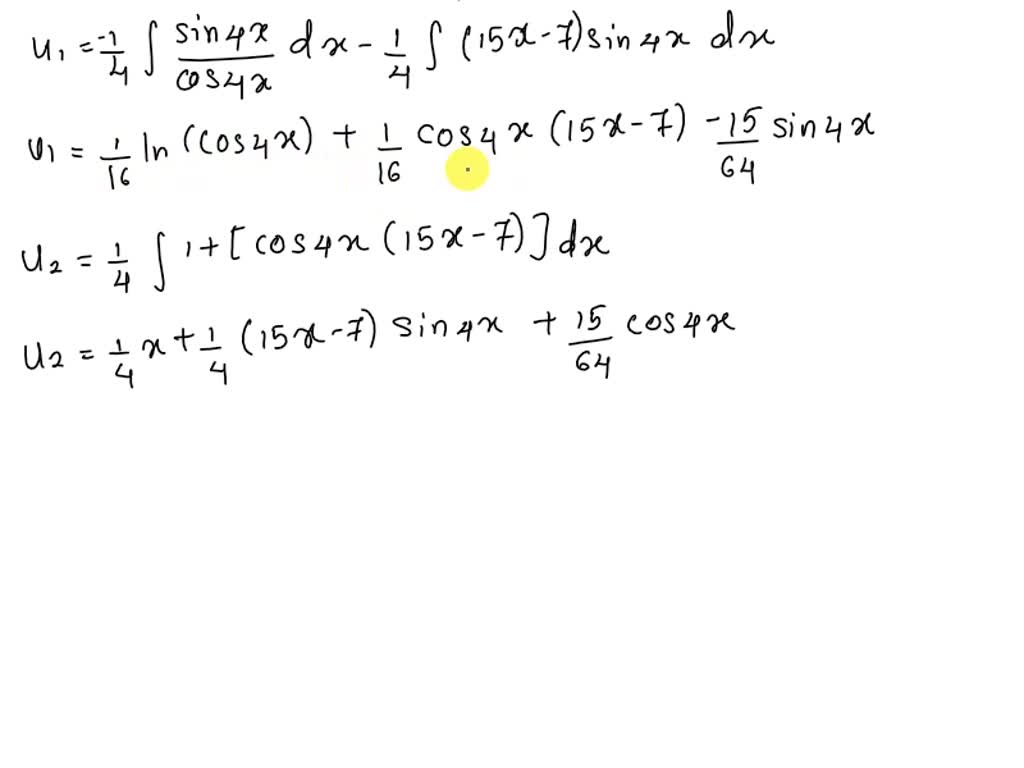 u₁ = -1/4 ∫ sin4x/cos4x dx - 1/4 ∫ (15x-7) sin4x dx
u₁ = 1/16 ln (cos4x) + 1/16 cos4x (15x-7) - 15/64 sin4x
u₂ = 1/4 ∫ 1+[cos4x (15x-7)] dx
u₂ = 1/4 x + 1/4 (15x-7) sin4x + 15/64 cos4x